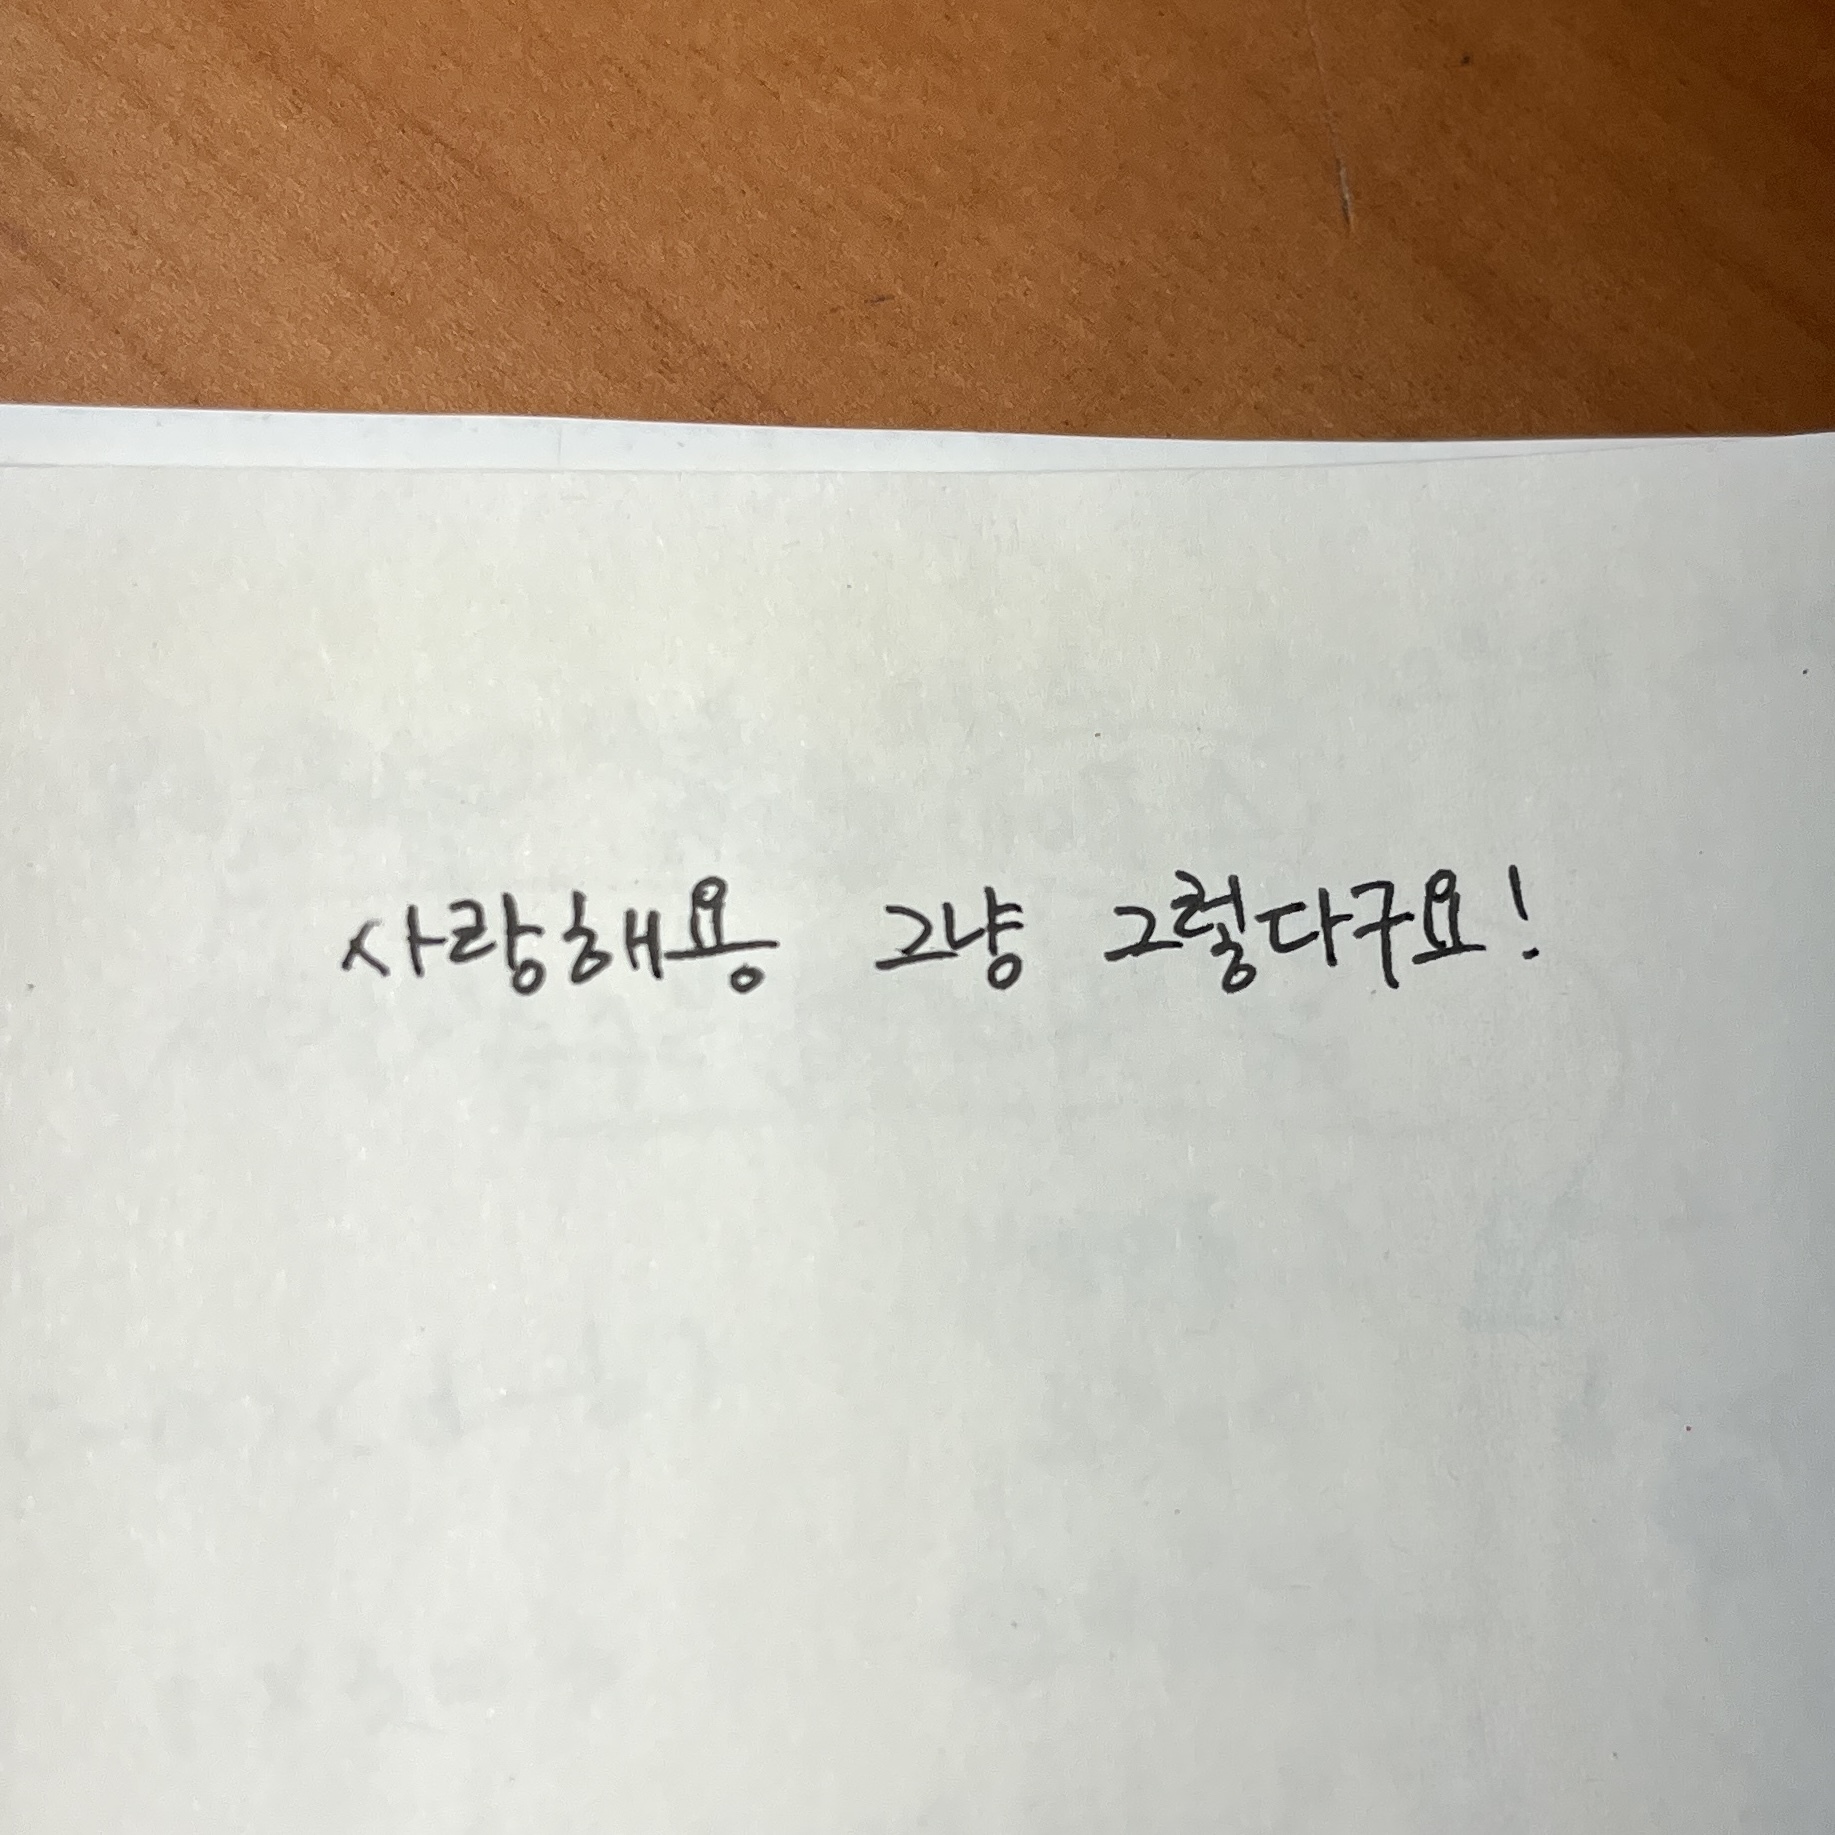 사랑해용 그냥 그렇다구요!